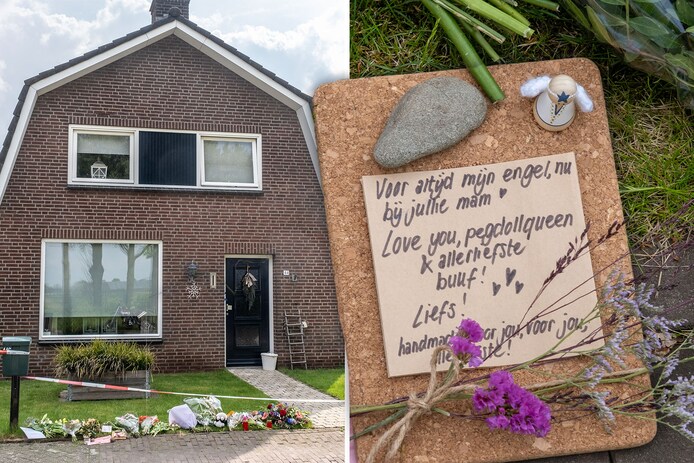 Voor altijd mijn engel, nu
bij jullie mam ♥
Love you, pegdollqueen
& allerliefste
buuf!
Liefs!
handmade voor jou, voor jou,